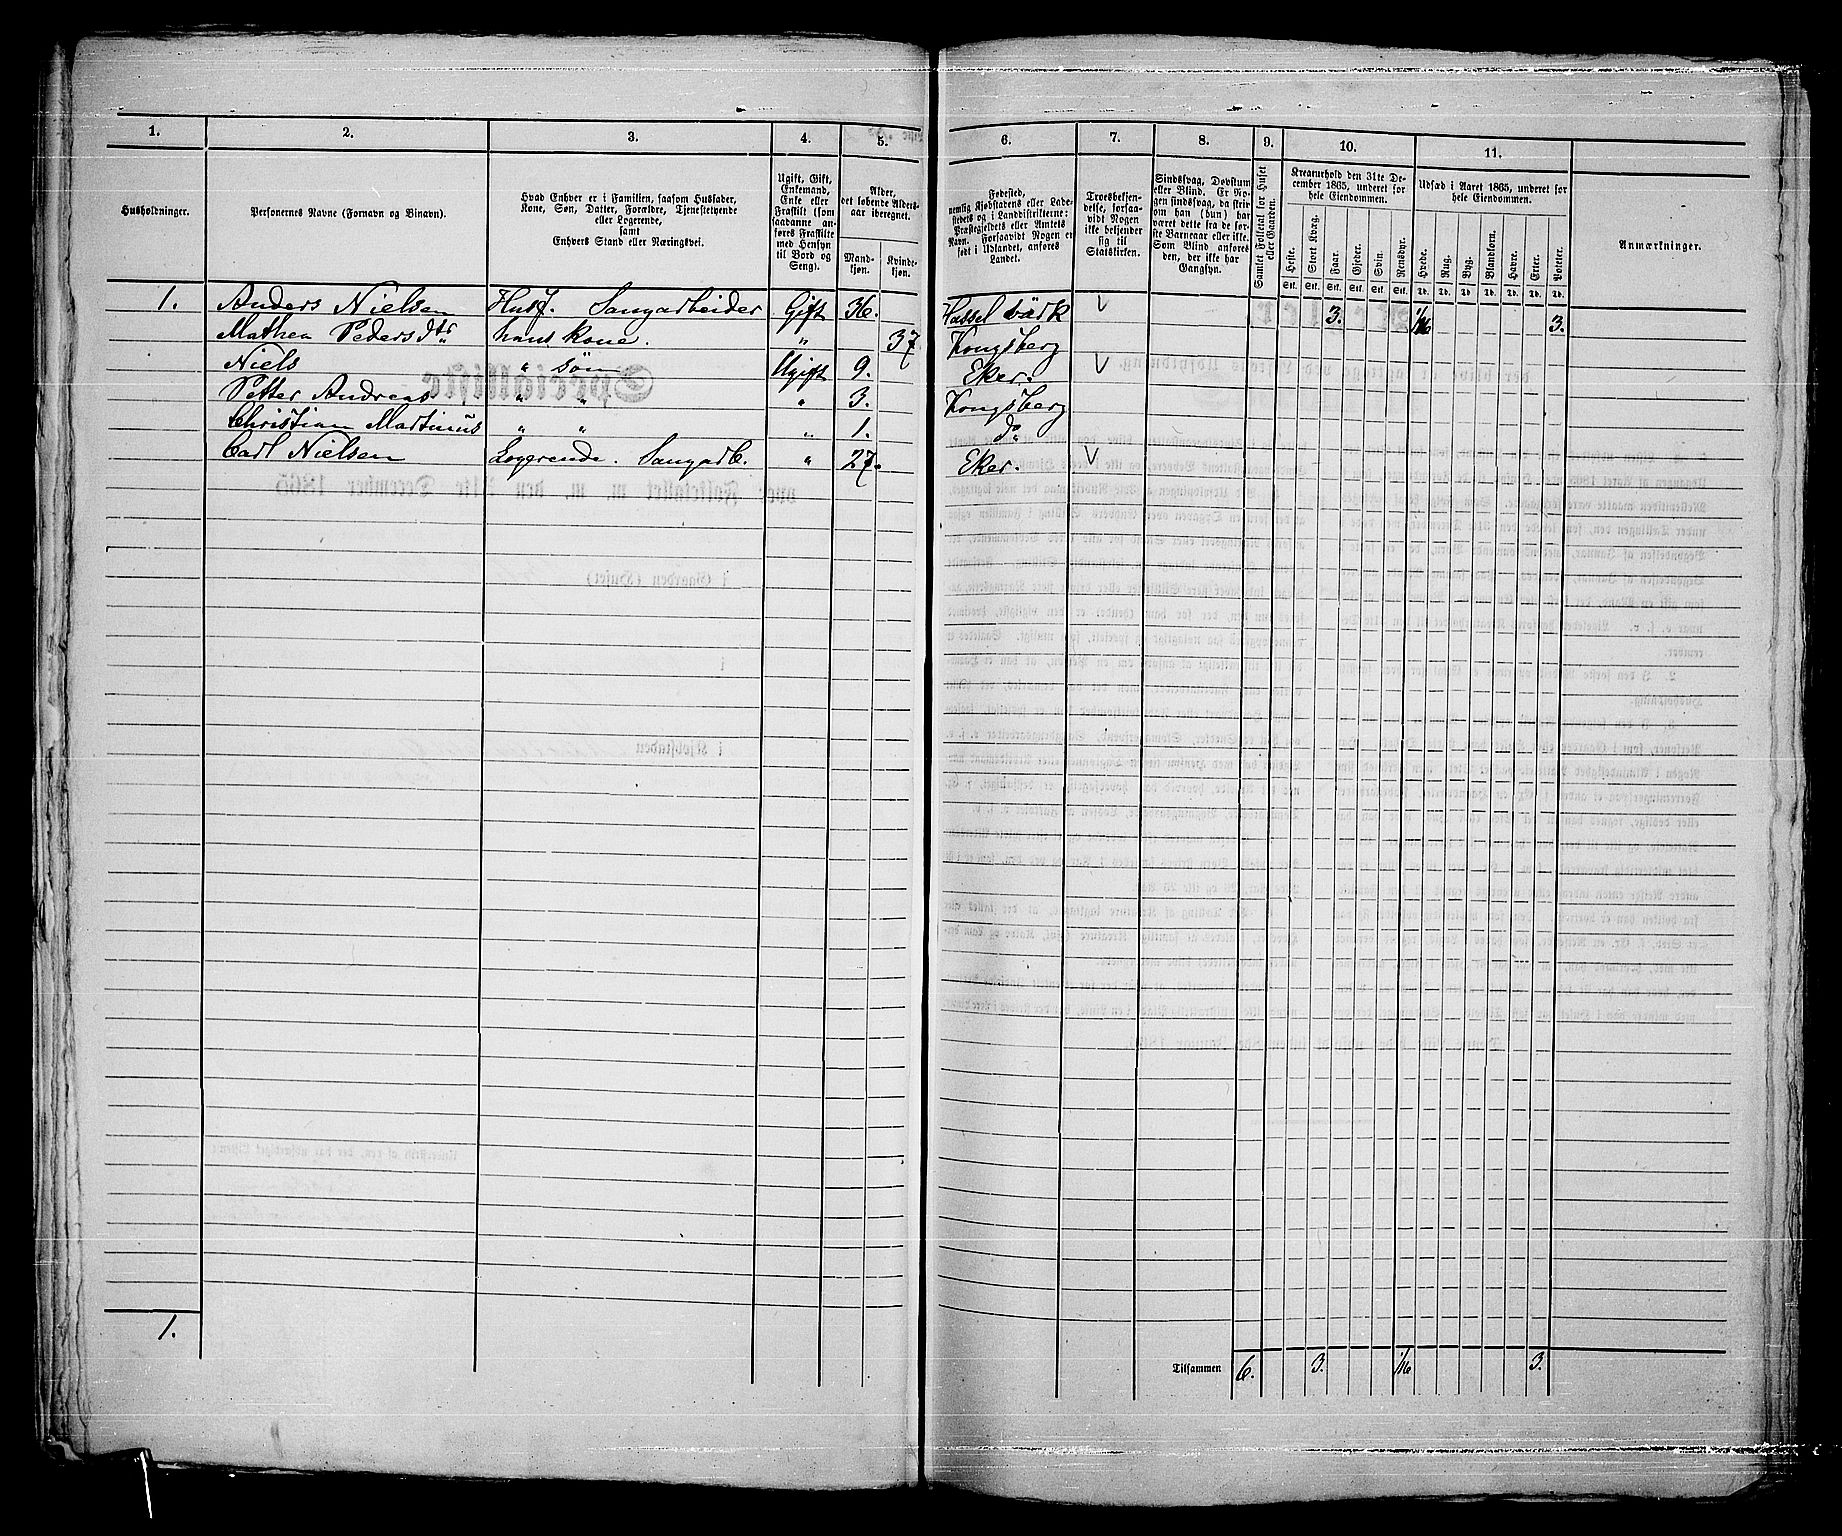 1.
2.
3.
4.
5.
6.
7.
8.
9.
10.
11.
Husholdninger.
Personernes Navne (Fornavn og Binavn).
Hvad Enhver er i Familien, saasom Husfader,
Kone, Søn, Datter, Forældre, Tjenestetyende
eller Logerende,
samt
Enhvers Stand eller Næringsvei.
Ugift, Gift,
Enkemand,
Enke eller
Fraskilt (som
saadanne an-
føres Fraskilte
med Hensyn
til Bord og
Seng).
Alder,
det løbende Alders-
aar iberegnet.
Mand-
kjøn.
Kvinde-
kjøn.
Fødested,
nemlig Kjøbstadens eller Lade-
stedets og i Landdistrikterne:
Præstegjeldets eller Amtets
Navn. Forsaavidt Nogen er
født i Udlandet, anføres
Landet.
Troesbekjen-
delse, forsaa-
vidt Nogen
ikke bekjender
sig til
Statskirken.
Sindssvag, Døvstum
eller Blind. Er No-
gen sindssvag, da skri-
ves om han (hun) har
været dette fra de før-
ste Barneaar eller ikke.
Som Blind anføres
den, der ikke har
Gangsyn.
Samlet Folketal for Huset
eller Gaarden.
Kreaturhold den 31te De-
cember 1865, underet for
hele Eiendommen.
Heste.
Stort Kvæg.
Faar.
Gjeder.
Svin.
Rensdyr.
Stk. Stk. Stk. Stk. Stk. Stk.
Udsæd i Aaret 1865, underet for
hele Eiendommen.
Hvede.
Rug.
Byg.
Blandkorn.
Havre.
Erter.
Poteter.
Td. Td. Td. Td. Td. Td. Td.
Anmærkninger.
1. Anders Nielsen Husf. Saugarbeider Gift 36. Hassel värk 3. 1/16 3.
Mathea Pedersdtr hans Kone. " 37 Kongsberg
Niels " søn Ugift 9. Eker.
Petter Andreas " " " 3. Kongsberg
Christian Martinus " " " 1. do
Carl Nielsen Logerende. Saugarb. " 27. Eker.
1.
Tilsammen 6. 3. 1/16 3.